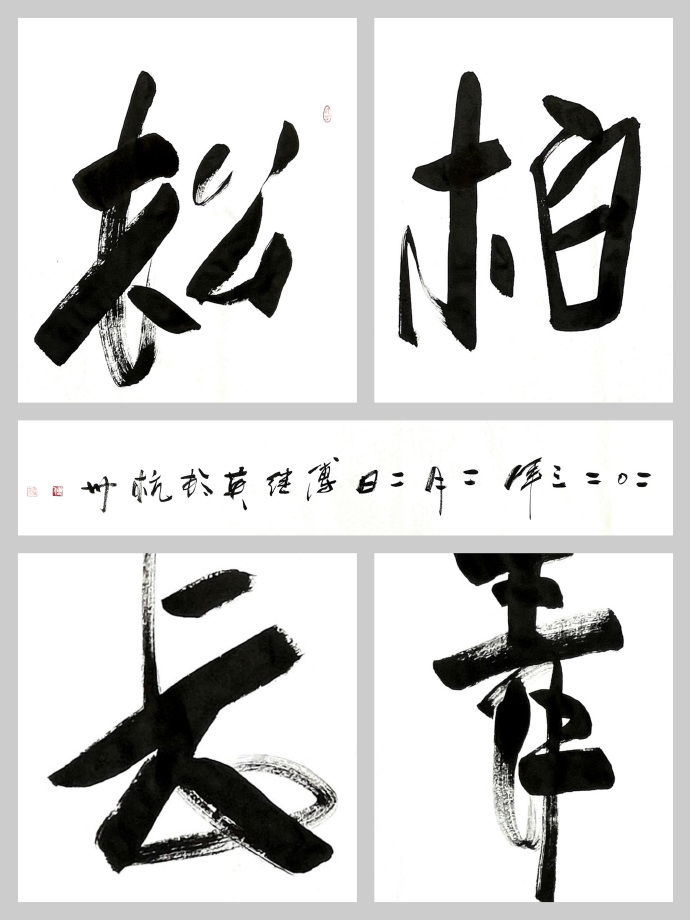 松柏
二〇二三年二月二日傅继英於杭州
长青